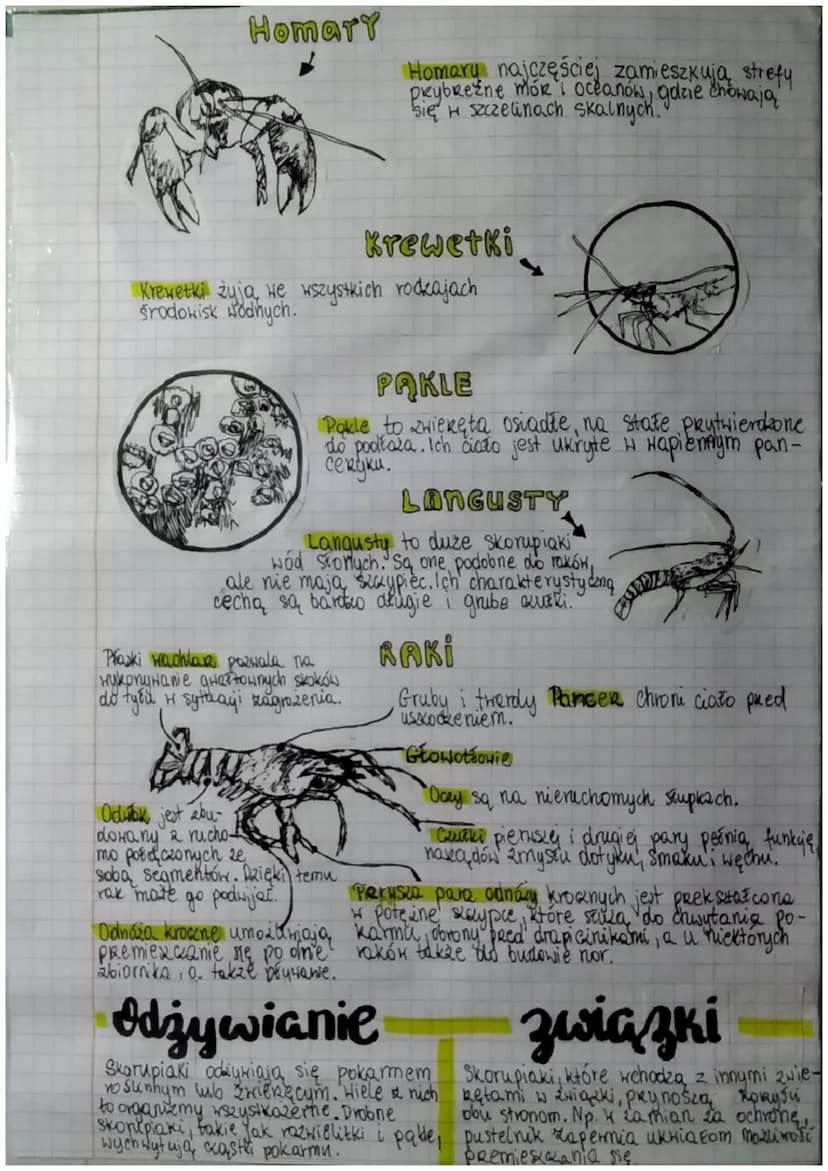 Homary
Homary najczęściej zamieszkują strefy
przybrzeżne mórz i oceanów, gdzie chowają
się w szczelinach skalnych.
Krewetki
Krewetki żyją we wszystkich rodzajach
środowisk wodnych.
PĄKLE
Pąkle to zwierzęta osiadłe, na stałe przytwierdzone
do podłoża. Ich ciało jest ukryte w wapiennym pan-
cerzyku.
LANGUSTY
Langusty to duże skorupiaki
wód słonych. Są one podobne do raków,
ale nie mają szczypiec. Ich charakterystyczną
cechą są bardzo długie i grube czułki.
RAKI
Płaski wachlarz pozwala na
wykonywanie gwałtownych skoków
do tyłu w sytuacji zagrożenia.
Gruby i twardy Pancerz chroni ciało przed
uszkodzeniem.
Głowotłowie
Oczy są na nieruchomych słupkach.
Czułki pierwszej i drugiej pary pełnią funkcję
narządów zmysłu dotyku, smaku i węchu.
Odwłok jest zbu-
dowany z rucho-
mo połączonych ze
sobą segmentów. Dzięki temu
rak może go podwijać.
Pierwsza para odnóży krocznych jest przekształcona
w potężne szczypce, które służą do chwytania po-
karmu, obrony przed drapieżnikami, a u niektórych
raków także do budowie nor.
Odnóża kroczne umożliwiają
przemieszczanie się po dnie
zbiornika, a także pływanie.
Odżywianie
Skorupiaki odżywiają się pokarmem
roślinnym lub zwierzęcym. Wiele z nich
to organizmy wszystkożerne. Drobne
skorupiaki, takie jak rozwielitki i pąkle,
wychwytują cząstki pokarmu.
związki
Skorupiaki, które wchodzą z innymi zwie-
rzętami w związki, przynoszą korzyści
obu stronom. Np. w zamian za ochronę,
pustelnik zapewnia ukwiałom możliwość
przemieszczania się